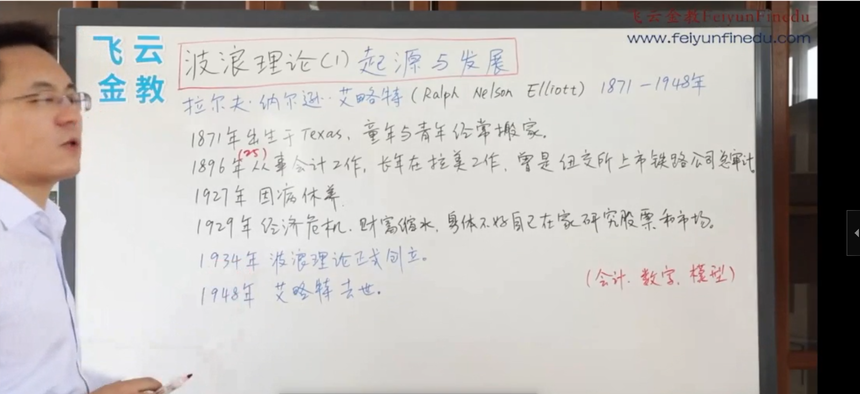 飞云金教FeiyunFinedu
www.feiyunfinedu.com
飞云
金教
波浪理论(1) 起源与发展
拉尔夫·纳尔逊·艾略特 (Ralph Nelson Elliott) 1871-1948年
1871年出生于Texas, 童年与青年经常搬家.
(25)
1896年从事会计工作, 长年在拉美工作, 曾是纽交所上市铁路公司总审计
1927年 因病休养.
1929年 经济危机, 财富缩水, 身体不好自己在家研究股票和市场。
1934年 波浪理论正式创立。
1948年 艾略特去世。
(会计、数字、模型)